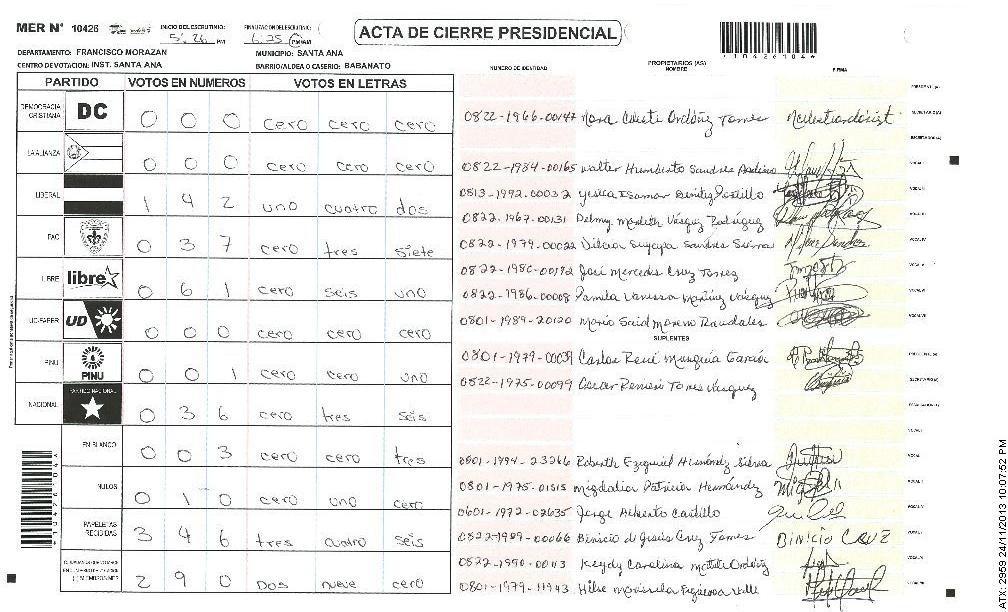 MER N° 10426 INICIO DEL ESCRUTINIO: 5:26 PM FINALIZACION ESCRUTINIO: 6:25 PM/AM
ACTA DE CIERRE PRESIDENCIAL
*10426104*
DEPARTAMENTO: FRANCISCO MORAZAN MUNICIPIO: SANTA ANA
CENTRO DE VOTACION: INST. SANTA ANA BARRIO/ALDEA O CASERIO: BABANATO
PARTIDO VOTOS EN NUMEROS VOTOS EN LETRAS
DEMOCRACIA CRISTIANA DC 0 0 0 cero cero cero
LA ALIANZA 0 0 0 cero cero cero
LIBERAL 1 4 2 uno cuatro dos
PAC 0 3 7 cero tres siete
LIBRE libre 0 6 1 cero seis uno
UD-FAPER UD 0 0 0 cero cero cero
PINU PINU 0 0 1 cero cero uno
NACIONAL PARTIDO NACIONAL 0 3 6 cero tres seis
EN BLANCO 0 0 3 cero cero tres
NULOS 0 1 0 cero uno cero
PAPELETAS RECIBIDAS 3 4 6 tres cuatro seis
2 9 0 Dos nueve cero
NUMERO DE IDENTIDAD PROPIETARIOS (AS) NOMBRE FIRMA
0822-1966-00147 Nora Celeste Ordóñez Torres
0822-1984-00165 Walter Humberto Sandres
0813-1992-00032 Yesica Isamar Benitez
0822-1967-00131 Delmy Vásquez Rodríguez
0822-1979-00022 Suyapa Sandres
0822-1980-00192 José Mercedes Cruz Torrez
0822-1986-00008 Pamila Vanessa Martínez Vásquez
0801-1989-20120 Mario Said Moreno Raudales
SUPLENTES
0801-1979-00039 Carlos René Munguía García
0822-1975-00099 Oscar Torres Vásquez
0801-1994-23266 Roberth Ezequiel Hernández
0801-1975-01515 Migdalia Patricia Hernández
0601-1972-02635 Jorge Alberto Castillo
0822-1989-00066 Binicio d Jesús Cruz Torres BINICIO CRUZ
0822-1990-00113 Keydy Carolina Ordóñez
0801-1979-11943 Figueroa
ATX: 2959 24/11/2013 10:07:52 PM